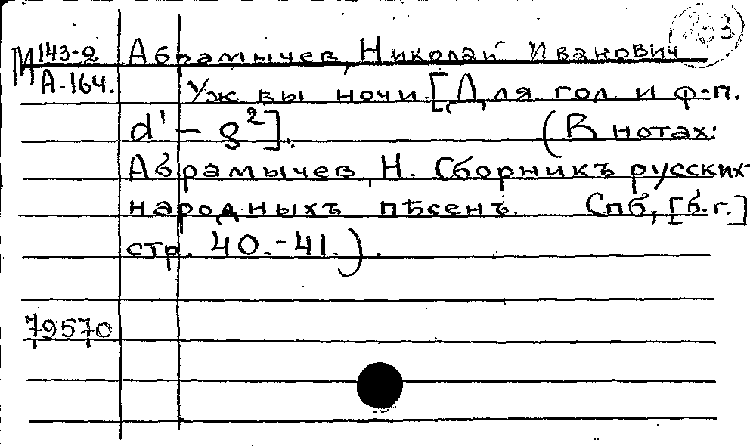 М 143-2 Абрамычев, Николай Иванович
А-164. Уж вы ночи. [Для гол и ф-п.
d¹ – g²]. (В нотах:
Абрамычев, Н. Сборникъ русских
народныхъ пѣсенъ. Спб, [б.г.]
стр. 40.-41.).
79570